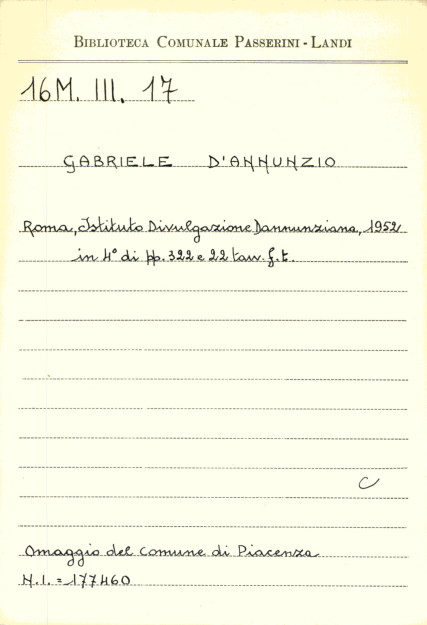 BIBLIOTECA COMUNALE PASSERINI - LANDI
16M. III. 17
GABRIELE D'ANNUNZIO
Roma, Istituto Divulgazione Dannunziana, 1952
in 4° di pp. 322 e 22 tav. f. t.
C
Omaggio del Comune di Piacenza
N.I. = 177460